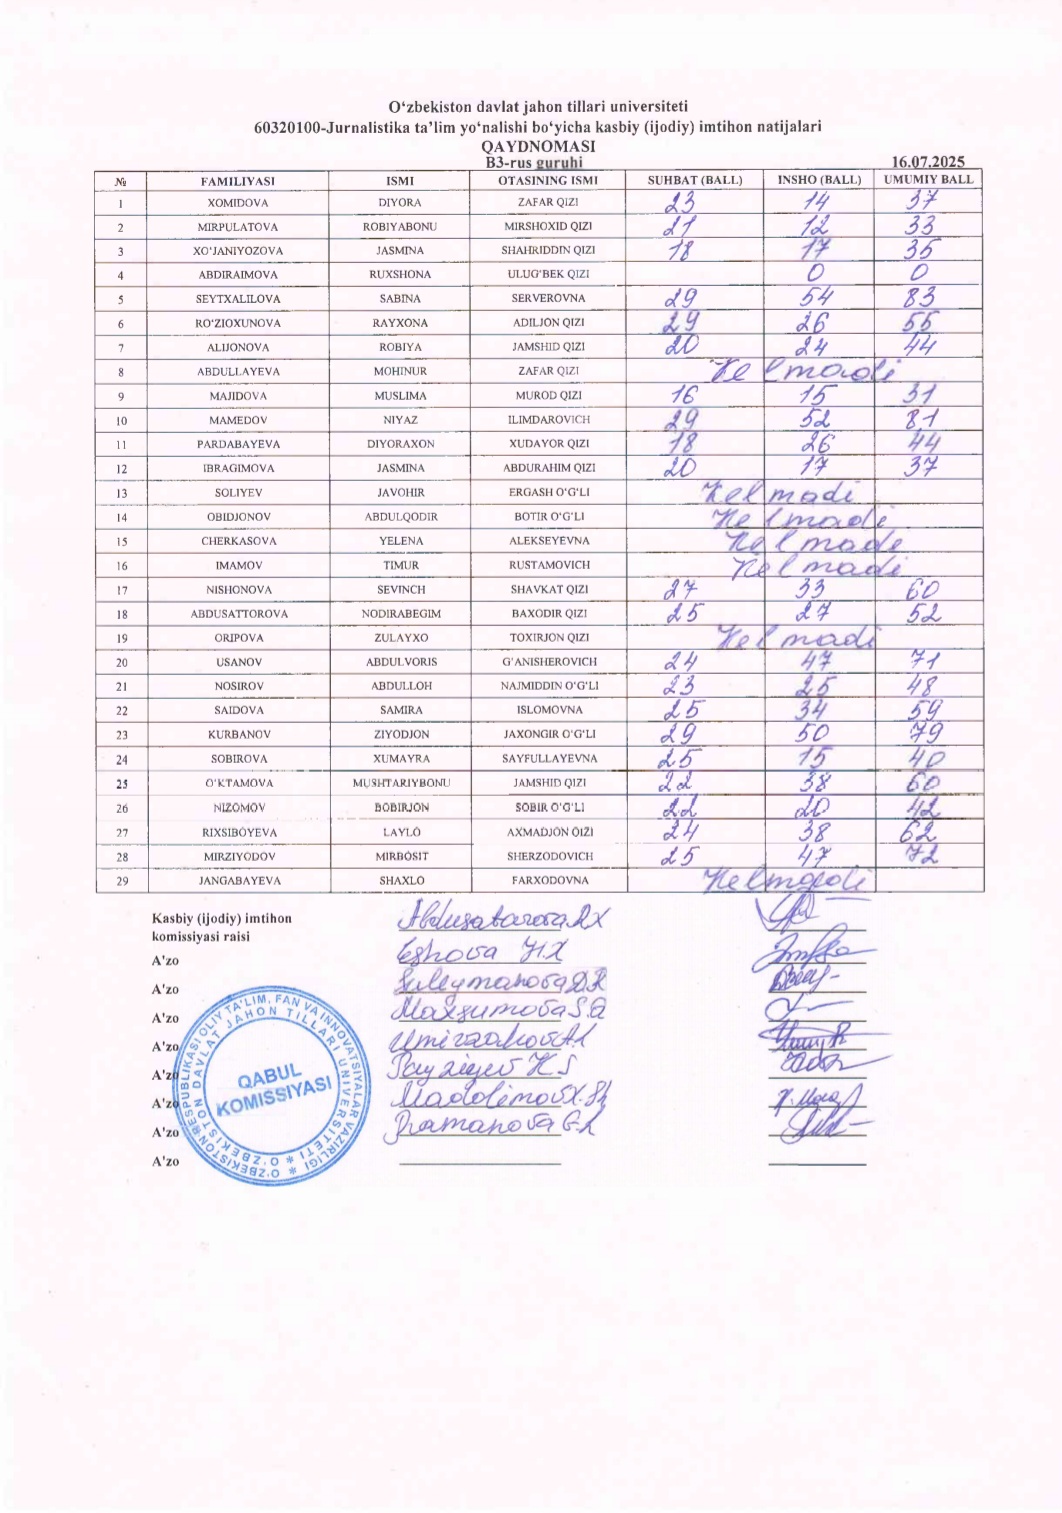 O‘zbekiston davlat jahon tillari universiteti
60320100-Jurnalistika ta’lim yo‘nalishi bo‘yicha kasbiy (ijodiy) imtihon natijalari
QAYDNOMASI
B3-rus guruhi 16.07.2025
№ FAMILIYASI ISMI OTASINING ISMI SUHBAT (BALL) INSHO (BALL) UMUMIY BALL
1 XOMIDOVA DIYORA ZAFAR QIZI 23 14 37
2 MIRPULATOVA ROBIYABONU MIRSHOXID QIZI 21 12 33
3 XO‘JANIYOZOVA JASMINA SHAHRIDDIN QIZI 18 17 35
4 ABDIRAIMOVA RUXSHONA ULUG‘BEK QIZI 0 0
5 SEYTXALILOVA SABINA SERVEROVNA 29 54 83
6 RO‘ZIOXUNOVA RAYXONA ADILJON QIZI 29 26 55
7 ALIJONOVA ROBIYA JAMSHID QIZI 20 24 44
8 ABDULLAYEVA MOHINUR ZAFAR QIZI Kelmadi
9 MAJIDOVA MUSLIMA MUROD QIZI 16 15 31
10 MAMEDOV NIYAZ ILIMDAROVICH 29 52 81
11 PARDABAYEVA DIYORAXON XUDAYOR QIZI 18 26 44
12 IBRAGIMOVA JASMINA ABDURAHIM QIZI 20 17 37
13 SOLIYEV JAVOHIR ERGASH O‘G‘LI Kelmadi
14 OBIDJONOV ABDULQODIR BOTIR O‘G‘LI Kelmadi
15 CHERKASOVA YELENA ALEKSEYEVNA Kelmadi
16 IMAMOV TIMUR RUSTAMOVICH Kelmadi
17 NISHONOVA SEVINCH SHAVKAT QIZI 27 33 60
18 ABDUSATTOROVA NODIRABEGIM BAXODIR QIZI 25 27 52
19 ORIPOVA ZULAYXO TOXIRJON QIZI Kelmadi
20 USANOV ABDULVORIS G‘ANISHEROVICH 24 47 71
21 NOSIROV ABDULLOH NAJMIDDIN O‘G‘LI 23 25 48
22 SAIDOVA SAMIRA ISLOMOVNA 25 34 59
23 KURBANOV ZIYODJON JAXONGIR O‘G‘LI 29 50 79
24 SOBIROVA XUMAYRA SAYFULLAYEVNA 25 15 40
25 O‘KTAMOVA MUSHTARIYBONU JAMSHID QIZI 22 38 60
26 NIZOMOV BOBIRJON SOBIR O‘G‘LI 22 20 42
27 RIXSIBOYEVA LAYLO AXMADJON QIZI 24 38 62
28 MIRZIYODOV MIRBOSIT SHERZODOVICH 25 47 72
29 JANGABAYEVA SHAXLO FARXODOVNA Kelmadi
Kasbiy (ijodiy) imtihon
komissiyasi raisi
A'zo
A'zo
A'zo
A'zo
A'zo
A'zo
A'zo
A'zo
QABUL
KOMISSIYASI